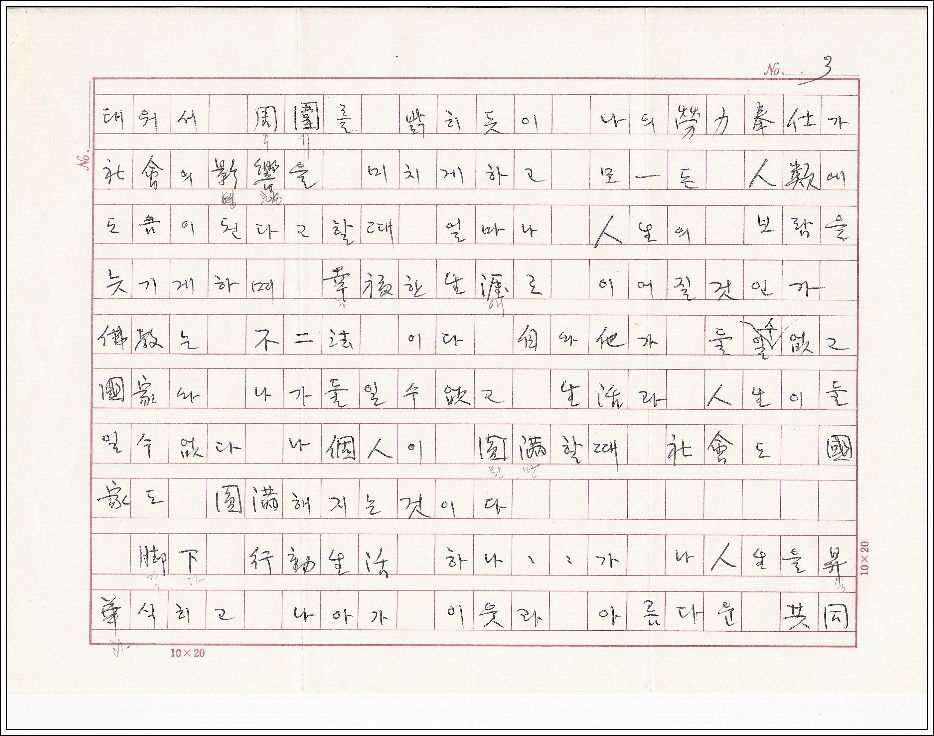 No. 3
No.
태워서 周圍를 밝히듯이 나의 勞力奉仕가
社會의 影響을 미치게하고 모一든 人類에
도움이 된다고 할때 얼마나 人生의 보람을
늣기게하며 幸福한 生涯로 이어질것인가
佛敎는 不二法 이다 自와 他가 둘일수없고
國家와 나가둘일수없고 生活과 人生이둘
일수없다 나個人이 圓滿할때 社會도 國
家도 圓滿해지는것이다
脚下 行動生活 하나ㆍㆍ가 나人生을 昇
華식히고 나아가 이웃과 아름다운 共同
10×20
10×20